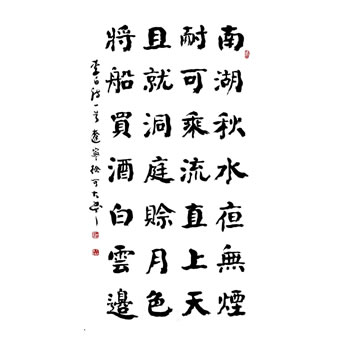 南湖秋水夜無煙
耐可乘流直上天
且就洞庭賒月色
將船買酒白雲邊
李白詩一首遼寧